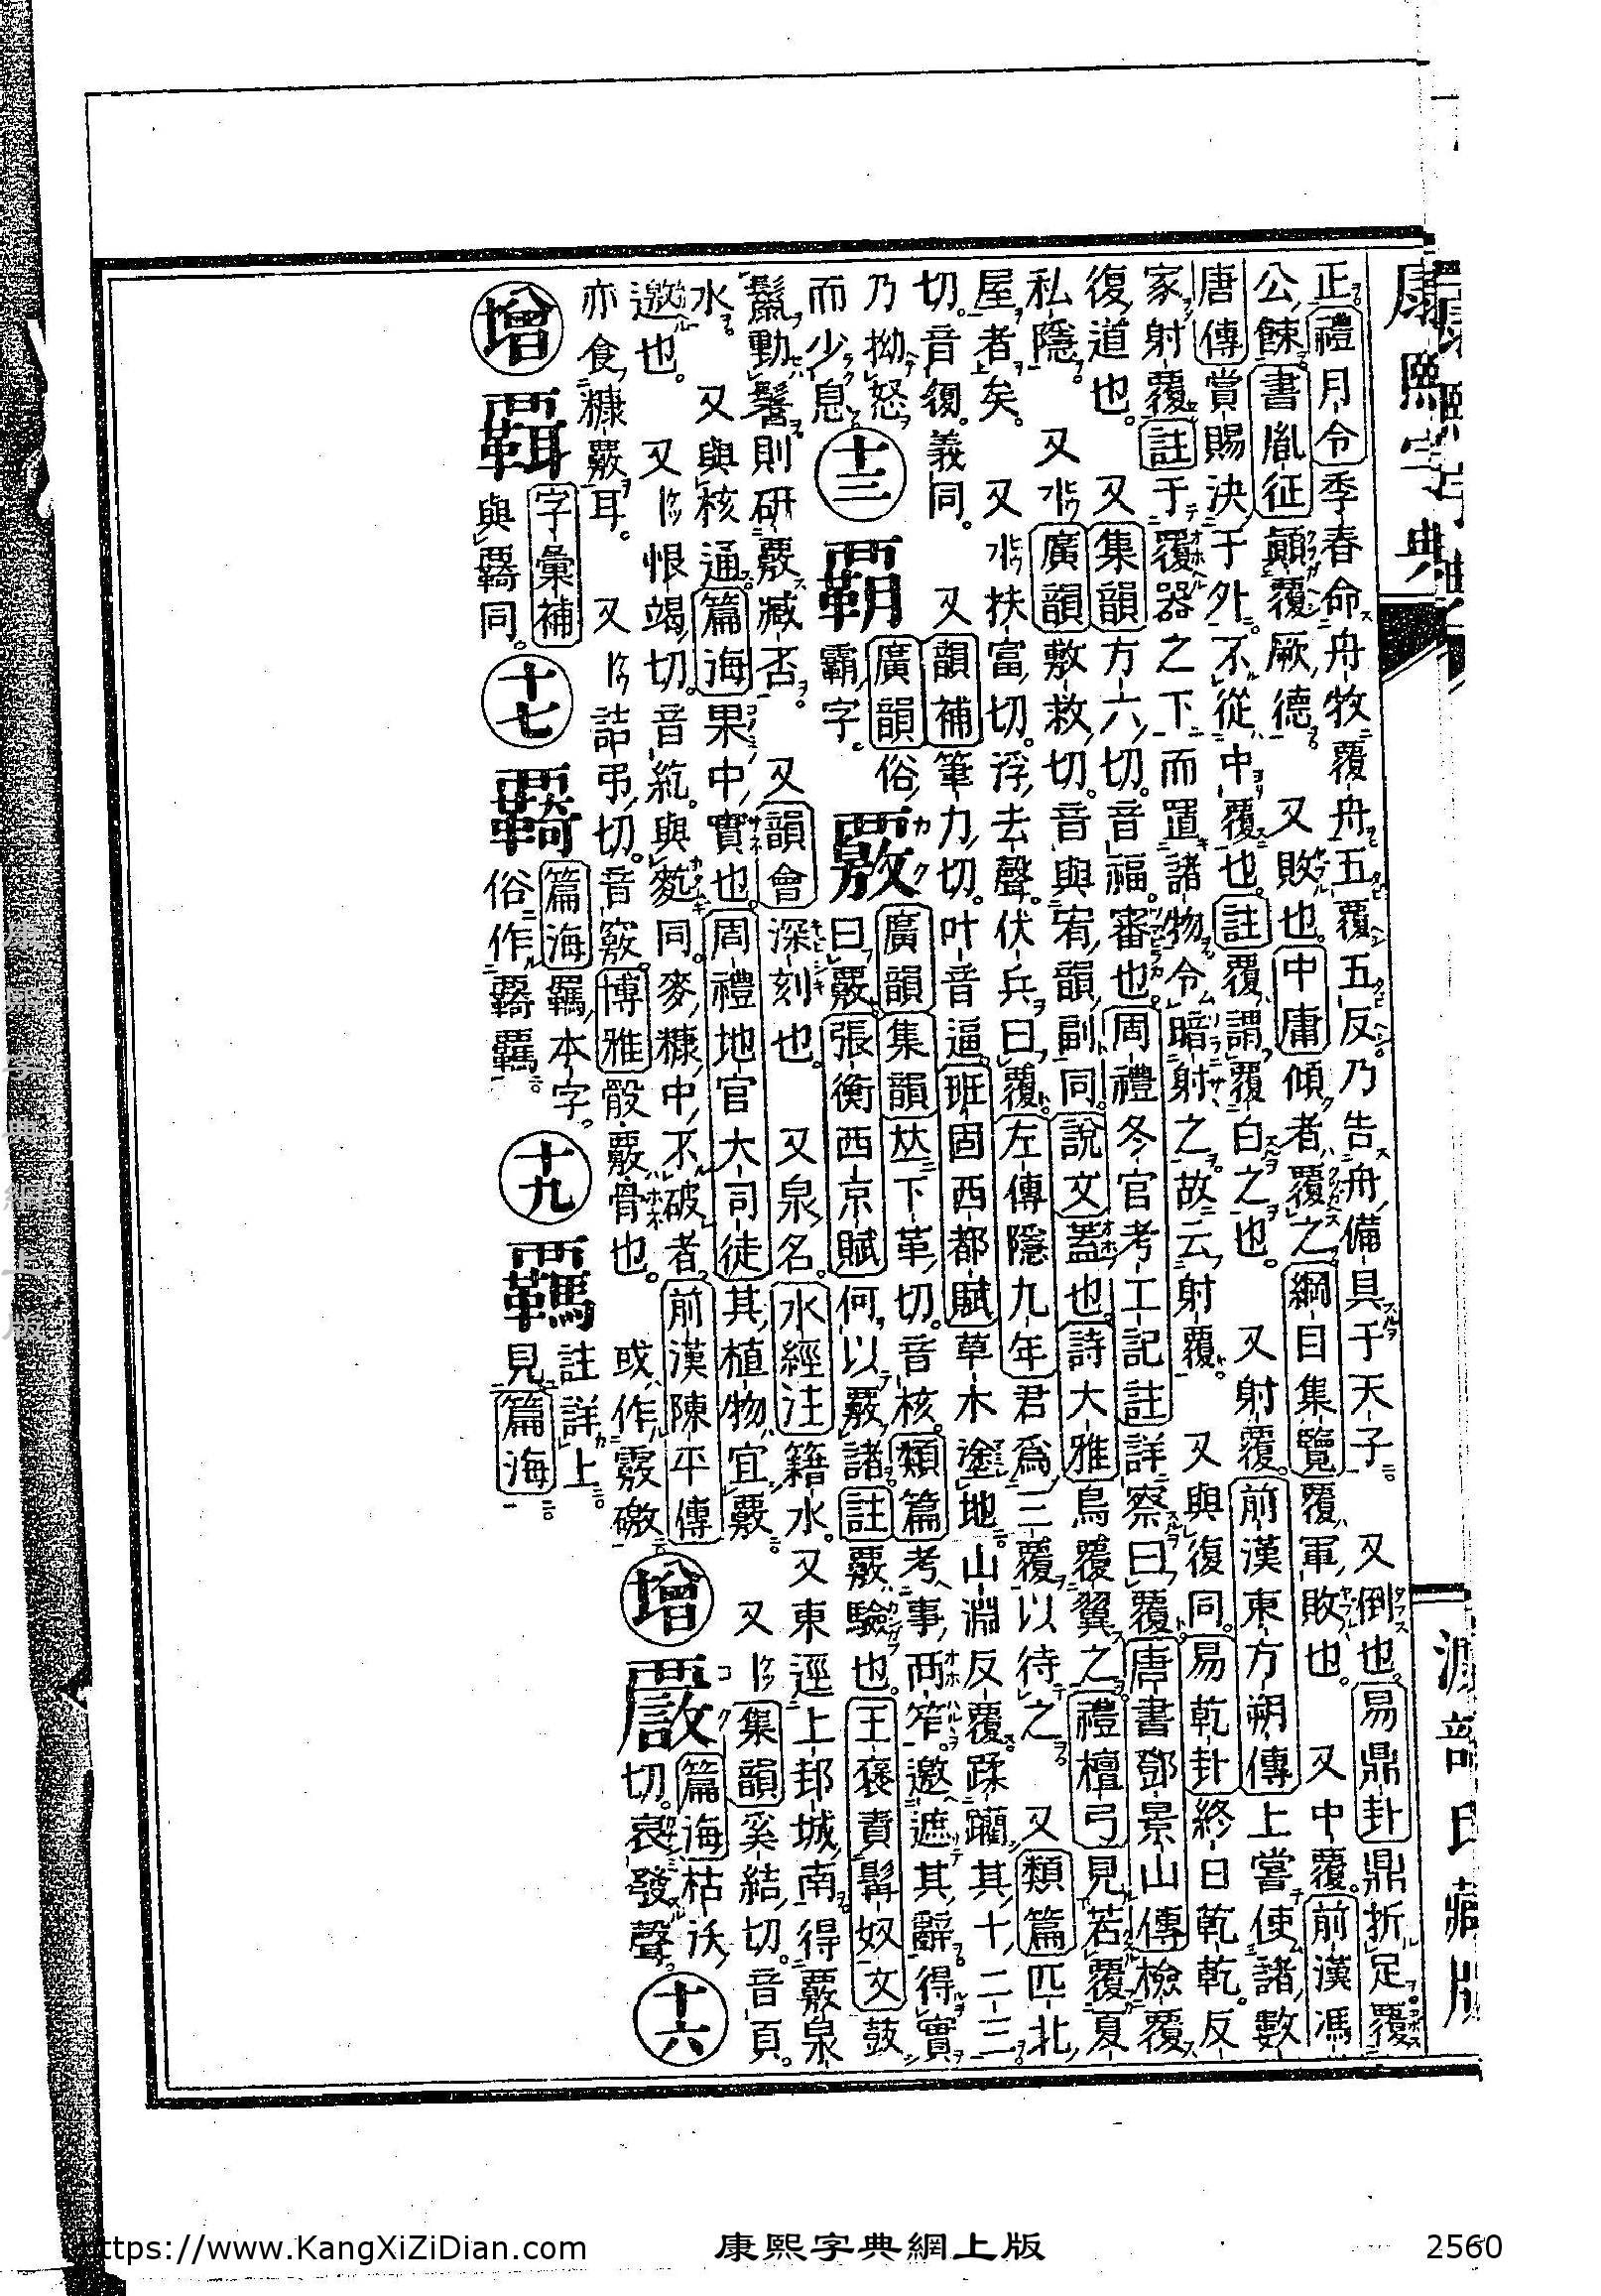 康熙字典
正禮月令季春命舟牧覆舟五覆五反乃告舟備具于天子 又倒也。易鼎卦鼎折足覆
公餗書胤征顚覆厥德 又敗也。中庸傾者覆之綱目集覽覆軍敗也。 又中覆。前漢馮
唐傳賞賜決于外。不從中覆也。註覆謂覆白之也。 又射覆。前漢東方朔傳上嘗使諸數
家射覆註于覆器之下而置諸物令暗射之故云射覆。 又與復同。易乾卦終日乾乾。反
復道也。 又集韻方六切。音福。審也。周禮冬官考工記註詳察曰覆唐書鄧景山傳檢覆
私隱。 又廣韻敷救切。音與宥韻副同。說文蓋也。詩大雅鳥覆翼之。禮檀弓見若覆夏
屋者矣。 又扶富切。浮去聲。伏兵曰覆。左傳隱九年君爲三覆以待之。 又類篇匹北
切。音復。義同。 又韻補筆力切。叶音逼。班固西都賦草木塗地。山淵反覆。蹂躪其十二三。
乃拗怒
而少息
十三
覇
廣韻俗
霸字。
覈
廣韻集韻𠀤下革切。音核。類篇考事。兩笮。邀遮其辭得實
曰覈。張衡西京賦何以覈諸註覈驗也。王褒責髯奴文鼓
鬣動鬐則研覈臧否。 又韻會深刻也。 又泉名。水經注籍水。又東逕上邽城南得覈泉
水。 又與核通篇海果中實也。周禮地官大司徒其植物宜覈。 又集韻奚結切。音頁。
邀也。 又恨竭切。音紇。與麧同。麥糠中不破者。前漢陳平傳
亦食糠覈耳。 又詰弔切。音竅。博雅骰覈骨也。 或作䨣礉
增
篇海枯沃
切。哀發聲。
十六
增
字彙補
與覉同。
十七
覉
篇海羈本字。
俗作覉覊。
十九
覊
註詳上。
見篇海
渡部氏藏版
https://www.KangXiZiDian.com
康熙字典網上版
2560
康熙字典網上版